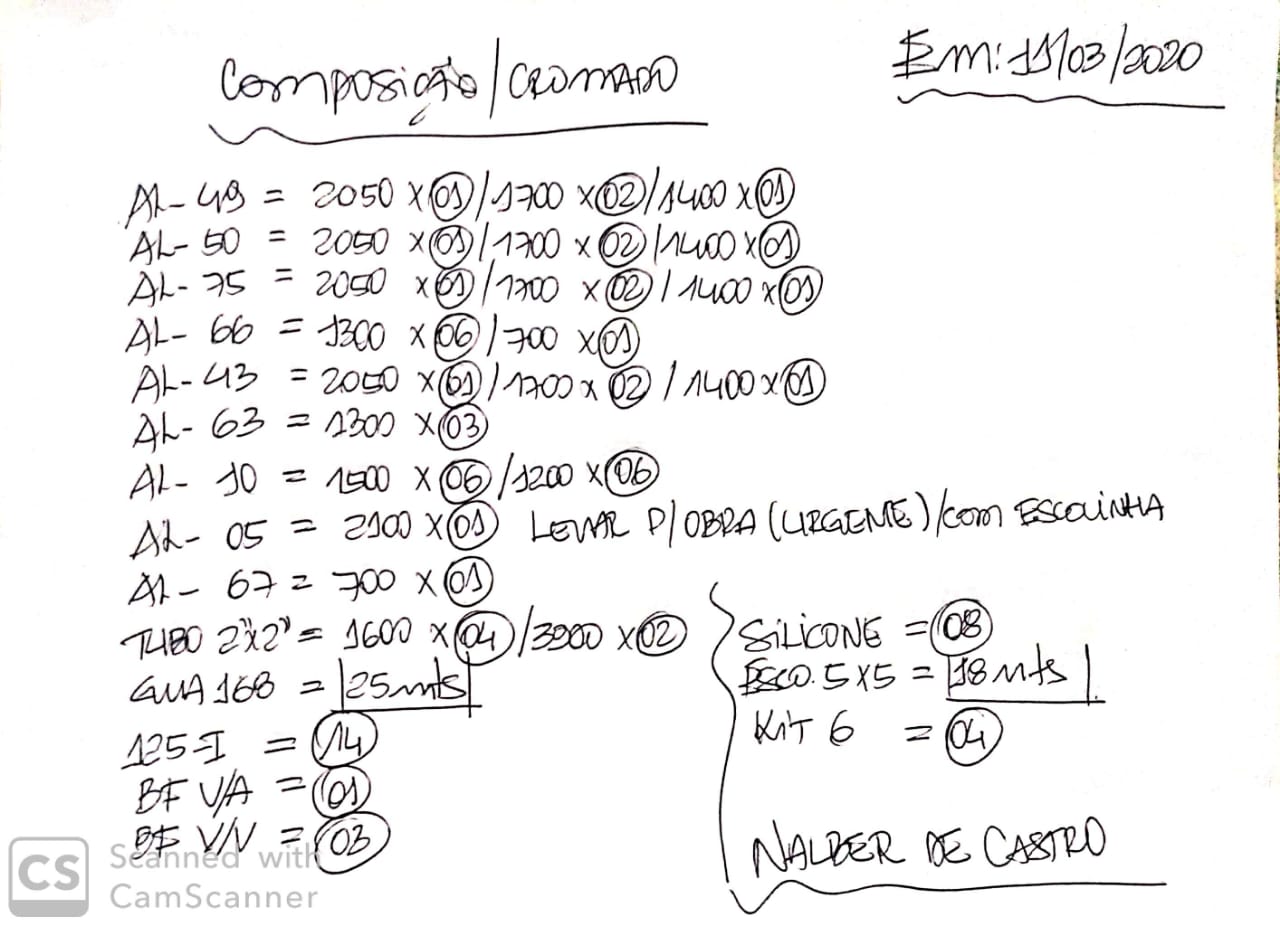 Composição/CROMADO
Em: 11/03/2020
AL-49 = 2050 x 01/1700 x 02/1400 x 01
AL-50 = 2050 x 01/1700 x 02/1400 x 01
AL-75 = 2050 x 01/1700 x 02/1400 x 01
AL-66 = 1300 x 06/700 x 01
AL-43 = 2050 x 01/1700 x 02/1400 x 01
AL-63 = 1300 x 03
AL-10 = 1500 x 06/1200 x 06
AL-05 = 2100 x 01 LEVAR P/OBRA (URGENTE)/com ESCOVINHA
AL-67 = 700 x 01
TUBO 2"x2" = 1600 x 04/3900 x 02
GUA 168 = 25mts
125-I = 14
BF V/A = 01
BF V/V = 03
SILICONE = 08
ESCO. 5x5 = 18 mts
KIT 6 = 04
NALBER DE CASTRO
CS Scanned with
CamScanner